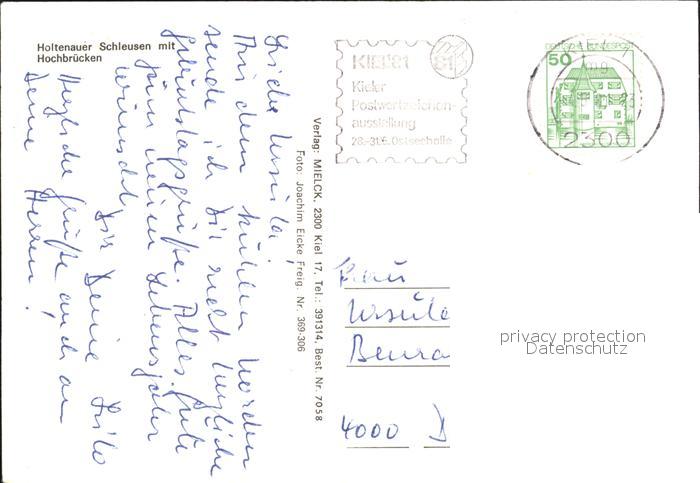 Holtenauer Schleusen mit
Hochbrücken
Liebe Ursula!
Aus dem kühlen Norden
sende ich Dir recht herzliche
Geburtstagsgrüße. Alles Gute
zum neuen Lebensjahr
wünscht
Dir Deine Lilo
Herzliche Grüße auch an
Deine Herren!
Verlag: MIELCK, 2300 Kiel 17, Tel.: 391314, Best. Nr. 7058
Foto: Joachim Eicke Freig. Nr. 369-306
KIEL'81
81
Kieler
Postwertzeichen-
ausstellung
28.-31.5. Ostseehalle
DEUTSCHE BUNDESPOST
50
2300
Frau
Ursula
4000 D
privacy protection
Datenschutz